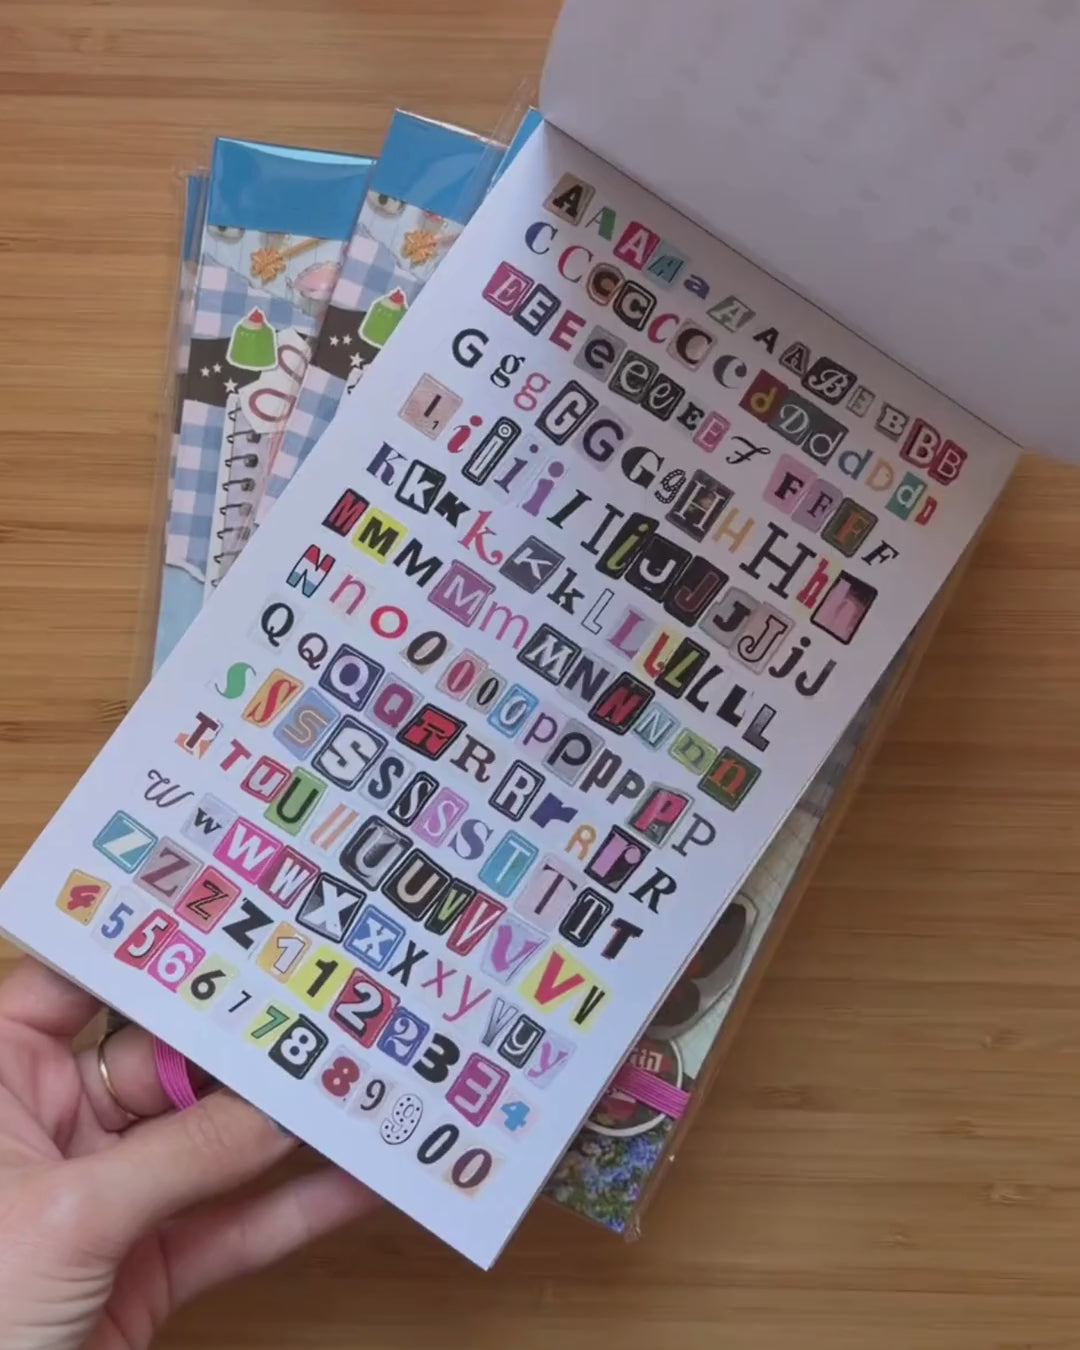 A A A A a A A A B B B B B
C C C C C C C C d D d d D d D
E E E e e e E E F F F F F
G g g G G G g H H H h h
I i i i i I I i J J J J j J
K K K k K k L L L L L L L
M M M M m M N N N n n
N n O O O O O P P P P P P P
Q Q Q Q R R R r R r R
S S S S S S S S T T T T
T T U U U U U V V V V V
W W W W X X X X y y y y
Z Z Z Z 1 1 2 2 3 3 4
4 5 5 6 6 7 7 8 8 9 9 0 0